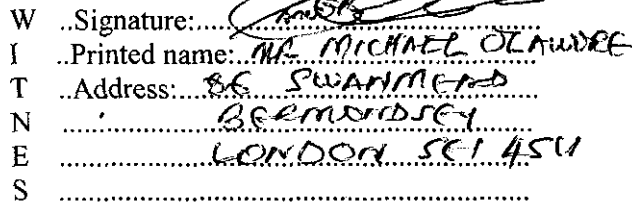 W ..Signature:....
I ..Printed name:..MR MICHAEL OLAWORE
T ..Address:...86 SWANMEAD
N BERMONDSEY
E LONDON SE1 4SU
S